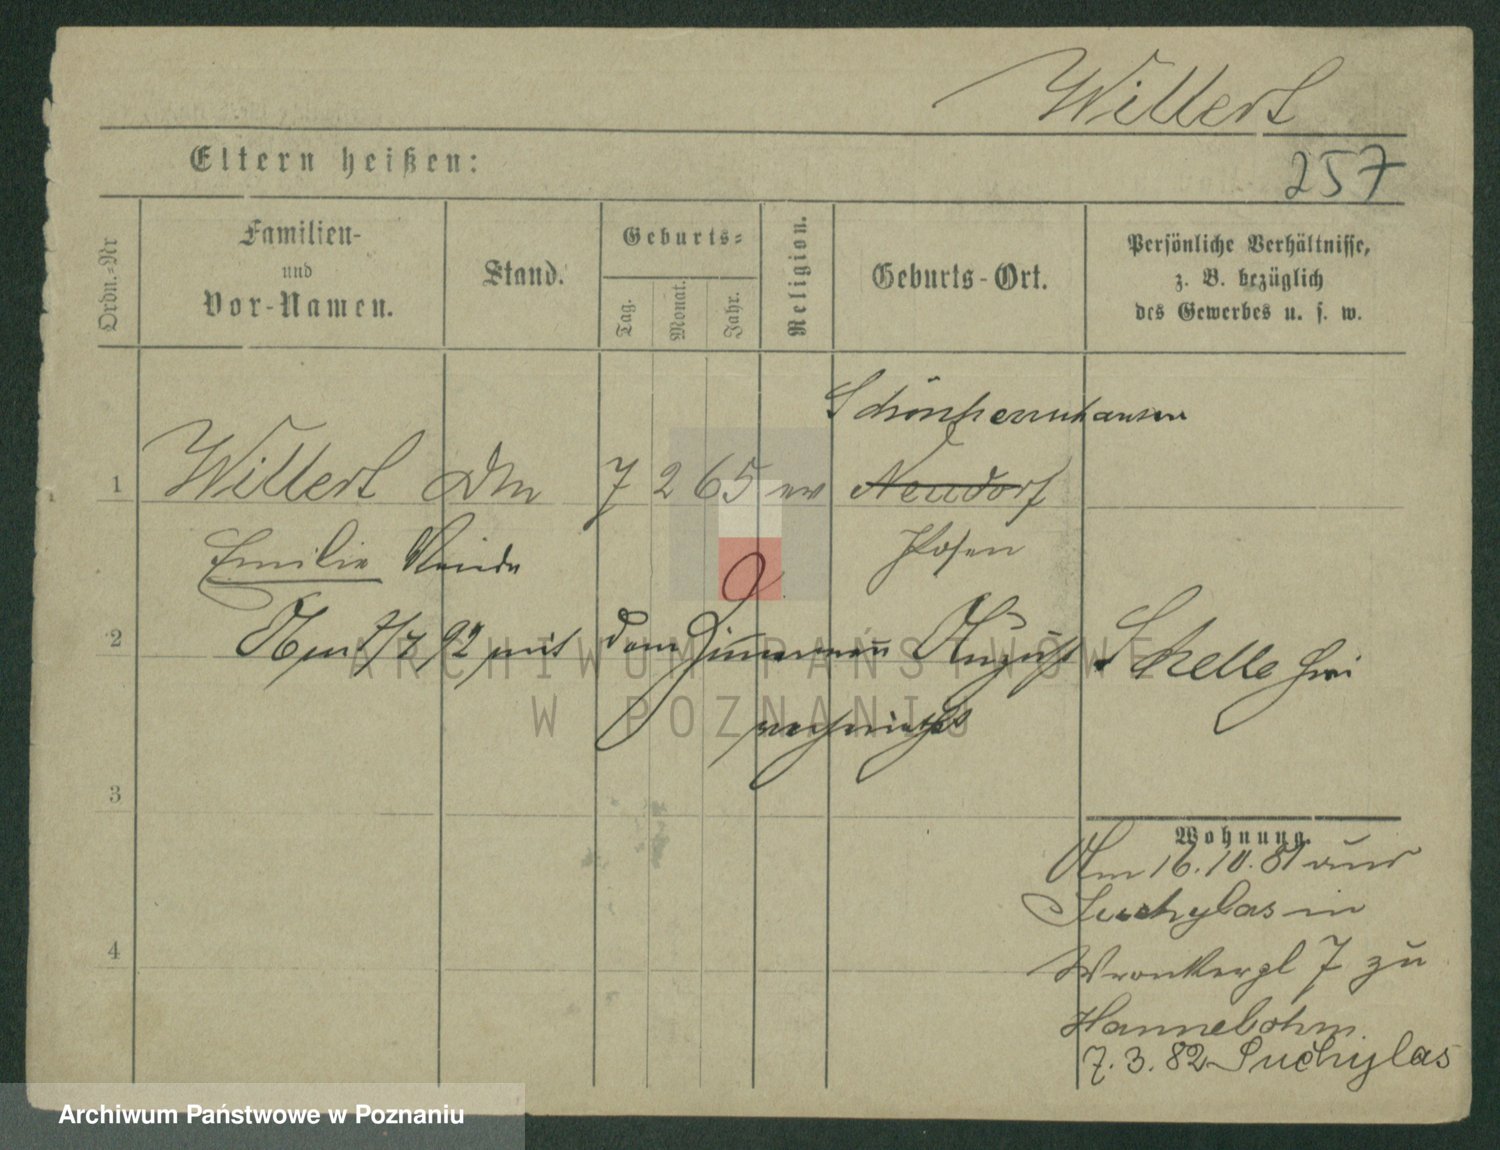 Willert
Eltern heißen:
257
Ordn.-Nr
Familien-
und
Vor-Namen.
Stand.
Geburts-
Tag.
Monat.
Jahr.
Religion.
Geburts-Ort.
Persönliche Verhältnisse,
z. B. bezüglich
des Gewerbes u. s. w.
Schönherrnhausen
1 Willert Dm 7 2 65 ev Neudorf
Emilie Posen
2 92 mit dem Zimmermann August Skelle
3
Wohnung.
Am 16.10.81 aus
Suchylas in
4
Wronkerpl 7 zu
Hannebohm.
7.3.82 Suchylas
ARCHIWUM PAŃSTWOWE
W POZNANIU
Archiwum Państwowe w Poznaniu